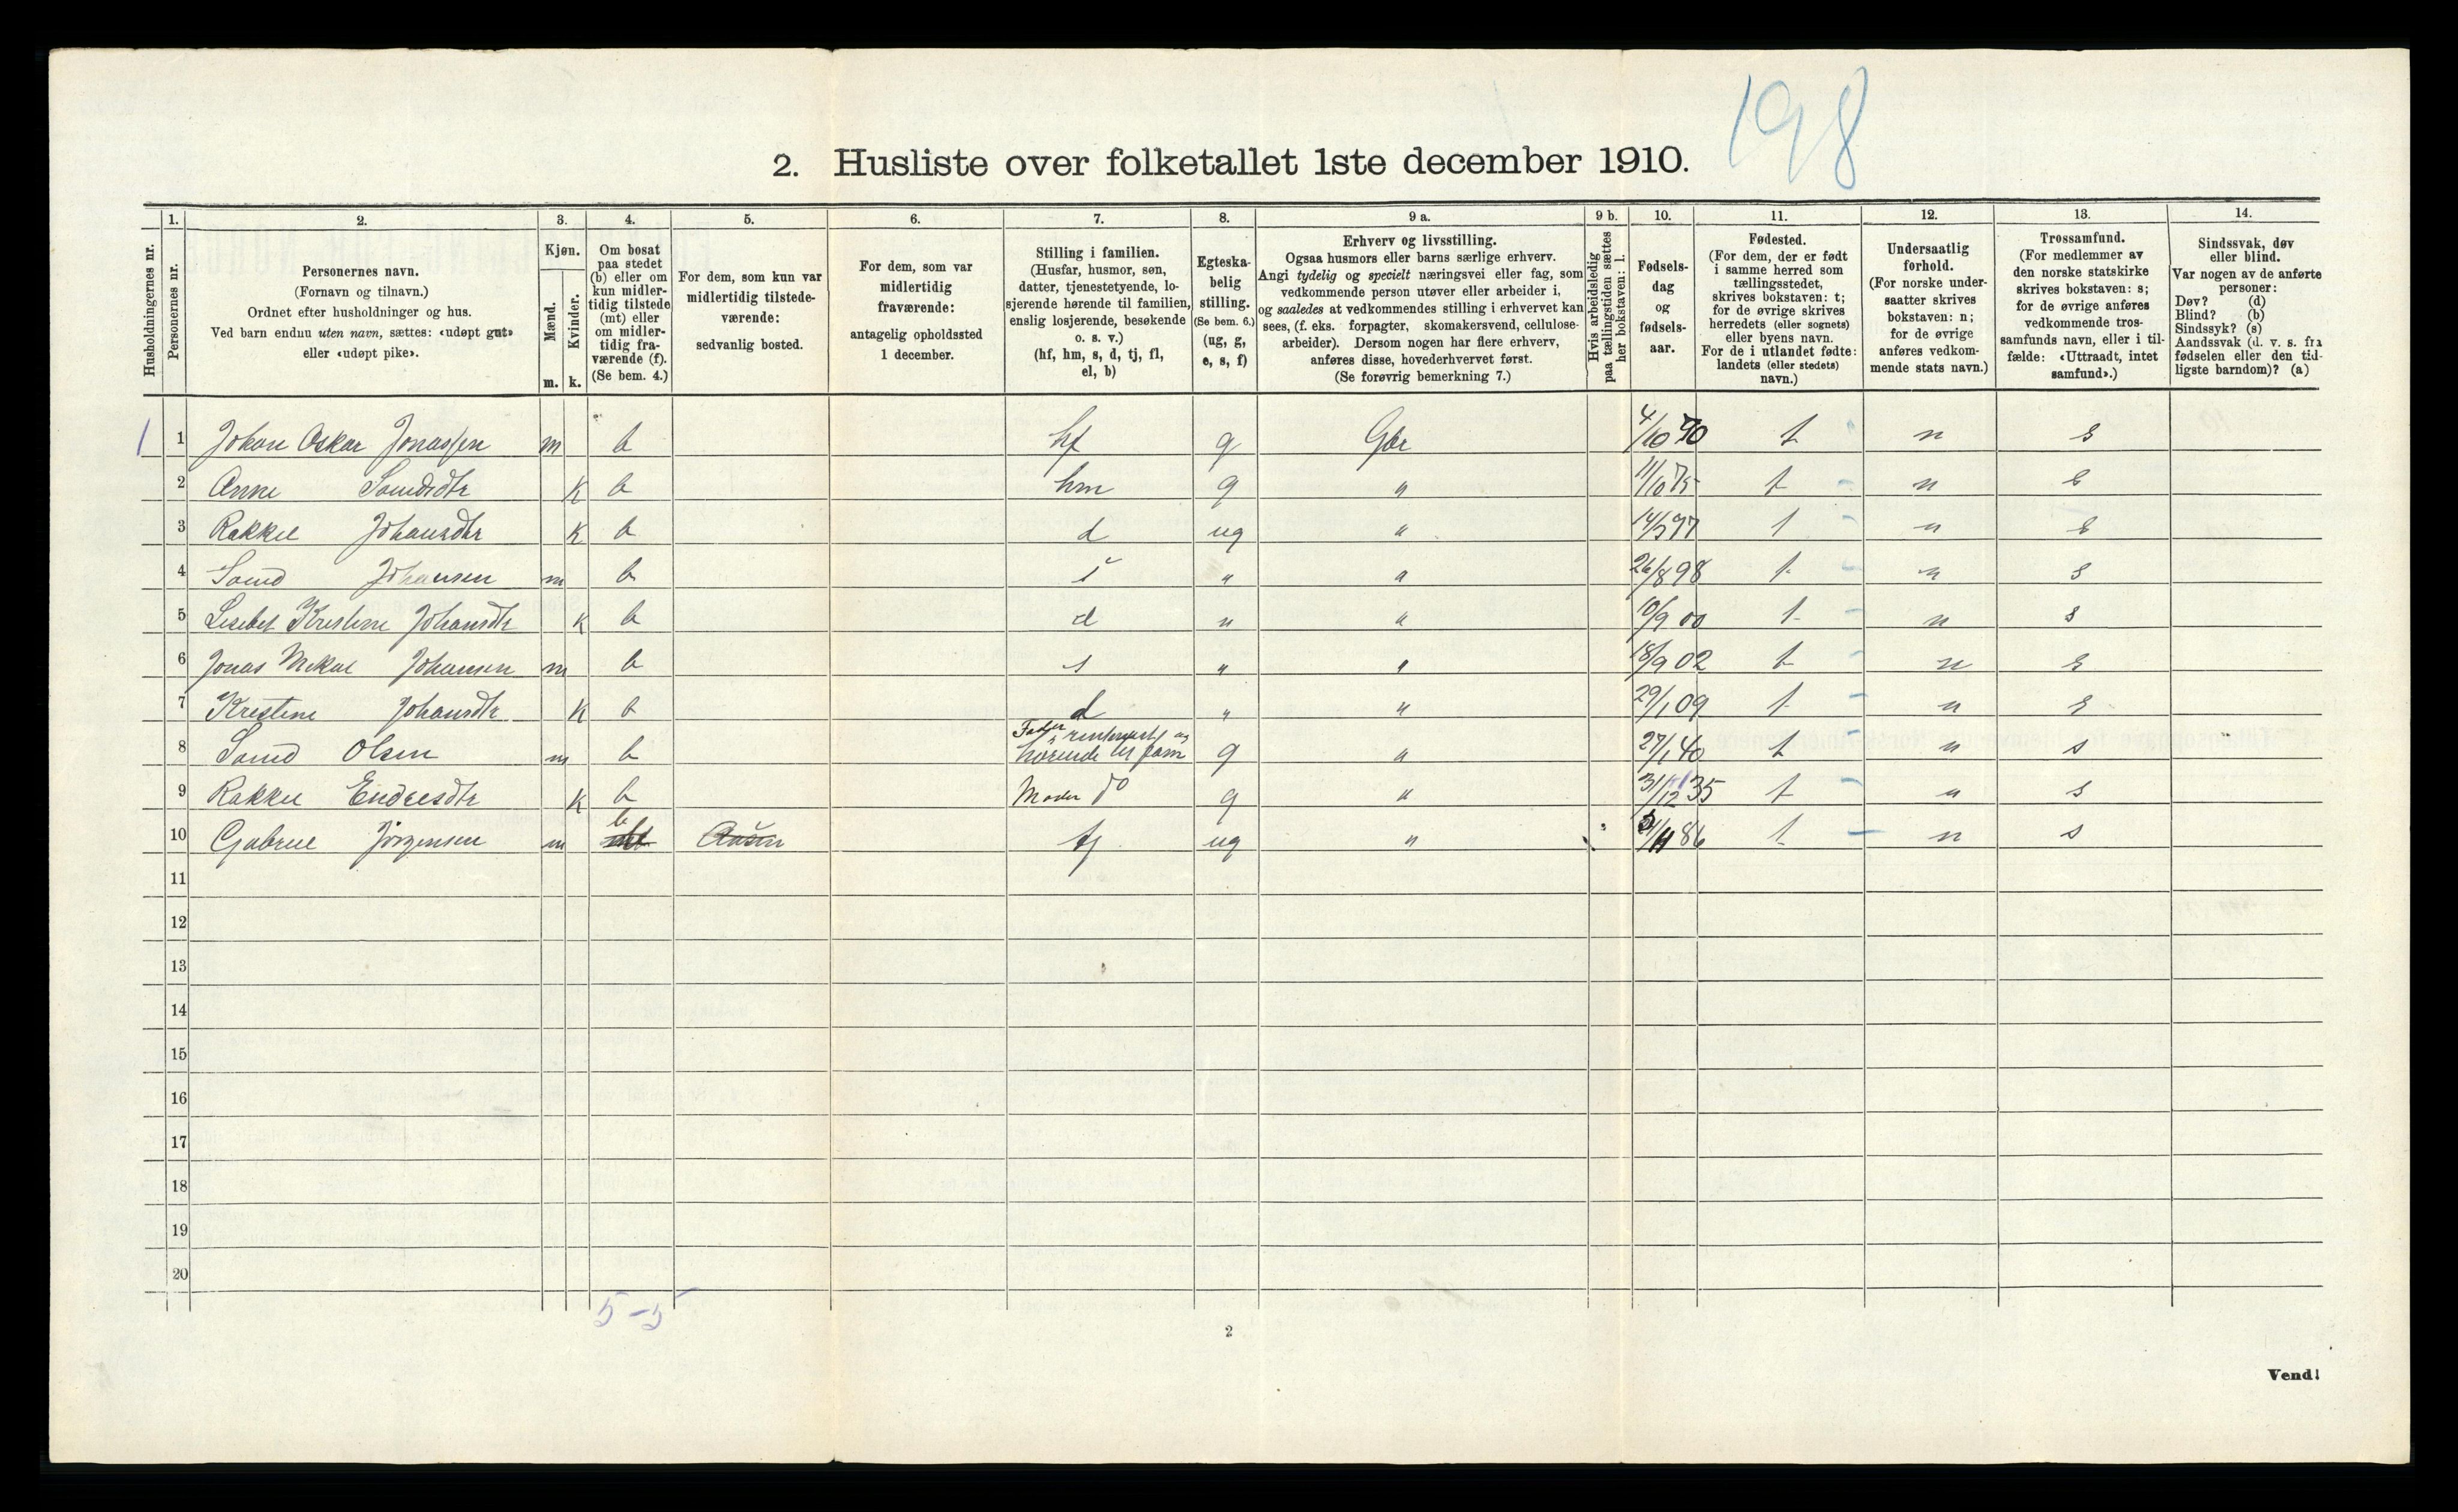 198
2. Husliste over folketallet 1ste december 1910.
Husholdningernes nr.
1. Personernes nr.
2. Personernes navn.
(Fornavn og tilnavn.)
Ordnet efter husholdninger og hus.
Ved barn endnu uten navn, sættes: «udøpt gut»
eller «udøpt pike».
3. Kjøn.
Mænd. Kvinder.
m. k.
4. Om bosat
paa stedet
(b) eller om
kun midler-
tidig tilstede
(mt) eller
om midler-
tidig fra-
værende (f).
(Se bem. 4.)
5. For dem, som kun var
midlertidig tilstede-
værende:
sedvanlig bosted.
6. For dem, som var
midlertidig
fraværende:
antagelig opholdssted
1 december.
7. Stilling i familien.
(Husfar, husmor, søn,
datter, tjenestetyende, lo-
sjerende hørende til familien,
enslig losjerende, besøkende
o. s. v.)
(hf, hm, s, d, tj, fl,
el, b)
8. Egteska-
belig
stilling.
(Se bem. 6.)
(ug, g,
e, s, f)
9 a. Erhverv og livsstilling.
Ogsaa husmors eller barns særlige erhverv.
Angi tydelig og specielt næringsvei eller fag, som
vedkommende person utøver eller arbeider i,
og saaledes at vedkommendes stilling i erhvervet kan
sees, (f. eks. forpagter, skomakersvend, cellulose-
arbeider). Dersom nogen har flere erhverv,
anføres disse, hovederhvervet først.
(Se forøvrig bemerkning 7.)
9 b. Hvis arbeidsledig
paa tællingstiden sættes
her bokstaven: l.
10. Fødsels-
dag
og
fødsels-
aar.
11. Fødested.
(For dem, der er født
i samme herred som
tællingsstedet,
skrives bokstaven: t;
for de øvrige skrives
herredets (eller sognets)
eller byens navn.
For de i utlandet fødte:
landets (eller stedets)
navn.)
12. Undersaatlig
forhold.
(For norske under-
saatter skrives
bokstaven: n;
for de øvrige
anføres vedkom-
mende stats navn.)
13. Trossamfund.
(For medlemmer av
den norske statskirke
skrives bokstaven: s;
for de øvrige anføres
vedkommende tros-
samfunds navn, eller i til-
fælde: «Uttraadt, intet
samfund».)
14. Sindssvak, døv
eller blind.
Var nogen av de anførte
personer:
Døv? (d)
Blind? (b)
Sindssyk? (s)
Aandssvak (d. v. s. fra
fødselen eller den tid-
ligste barndom)? (a)
1 1 Johan Oskar Jonassen m b hf g Gbr 4/10 70 t n s
2 Anne Samdsdtr k b hm g " 11/10 75 t n s
3 Rakkel Johansdtr k b d ug " t n s
4 Samd Johansen m b s " " 26/8 98 t n s
5 Lisebet Kristene Johansdtr k b d " " 10/9 00 t n s
6 Jonas Mikal Johansen m b s " " 18/9 02 t n s
7 Krestine Johansdtr k b d " " 29/1 09 t n s
8 Samd Olsen m b Fader hørende til fam g " 27/1 40 t n s
9 Rakkel Endresdtr k b Moder do g " 31/12 35 t n s
10 Gabriel Jørgensen m b tj ug " 86 t n s
11
12
13
14
15
16
17
18
19
20
5-5
2
Vend!